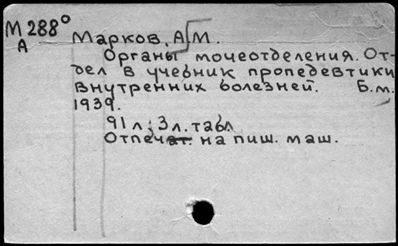 М 288°
А
Марков, А. М.
Органы мочеотделения. От-
дел в учебник пропедевтики
внутренних болезней. Б.м.,
1939.
91 л., 3 л. табл.
Отпечат. на пиш. маш.